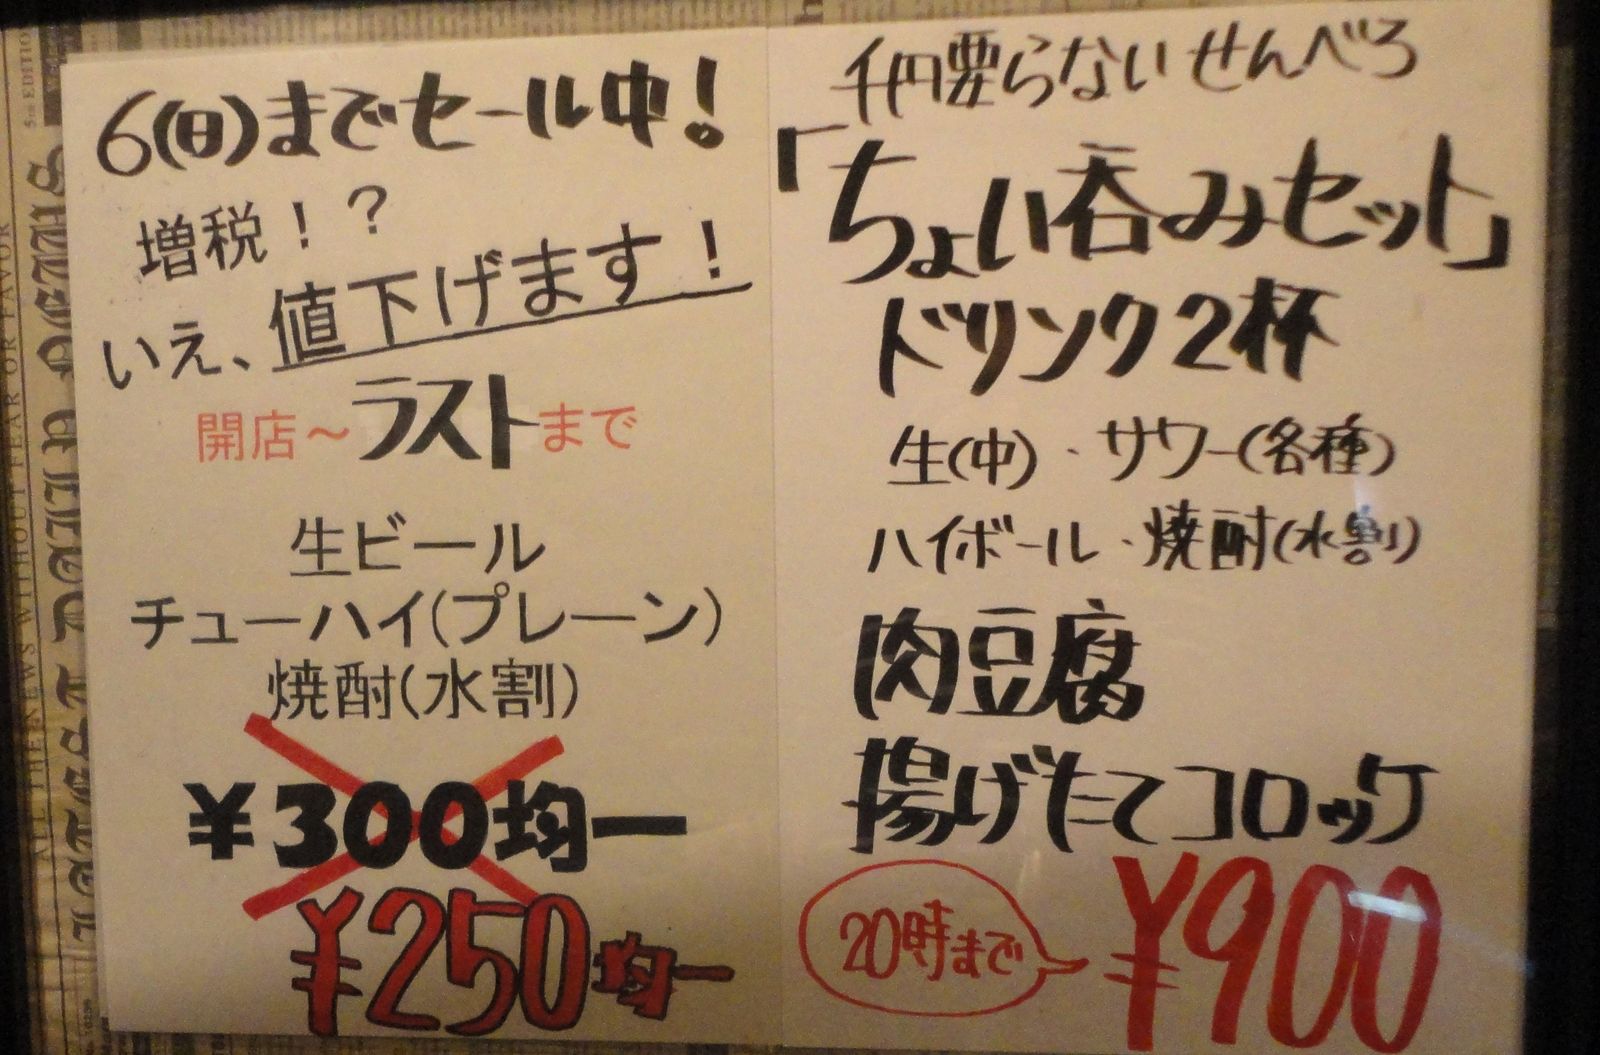 6(日)までセール中!
増税!?
いえ、値下げます!
開店~ラストまで
生ビール
チューハイ(プレーン)
焼酎(水割)
¥300均一
¥250均一
千円要らないせんべろ
「ちょい呑みセット」
ドリンク2杯
生(中)・サワー(各種)
ハイボール・焼酎(水割)
肉豆腐
揚げたてコロッケ
20時まで
¥900
ALL THE NEWS WITHOUT FEAR OR FAVOR